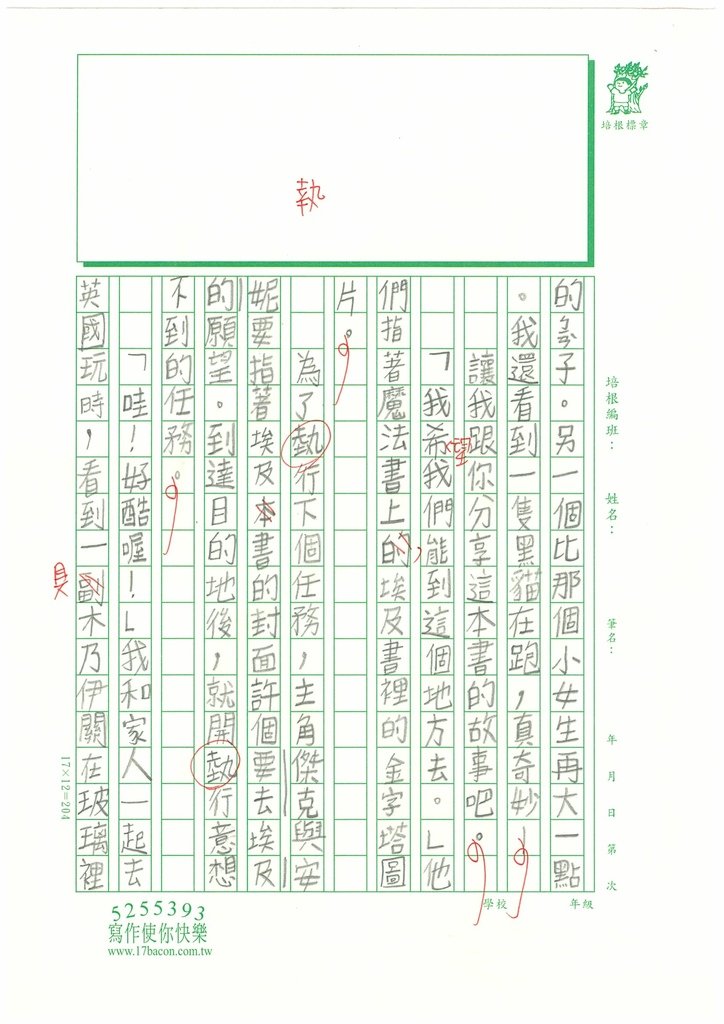 培根標章
執
培根編班： 姓名： 筆名： 年 月 日 第 次
學校 年級
的子。另一個比那個小女生再大一點
。我還看到一隻黑貓在跑，真奇妙！
讓我跟你分享這本書的故事吧。
「我希望我們能到這個地方去。」他
們指著魔法書上的，埃及書裡的金字塔圖
片。
為了執行下個任務，主角傑克與安
妮要指著埃及本書的封面許個要去埃及
的願望。到達目的地後，就開執行意想
不到的任務。
「哇！好酷喔！」我和家人一起去
英國玩時，看到一副木乃伊關在玻璃裡
具
17×12=204
5255393
寫作使你快樂
www.17bacon.com.tw